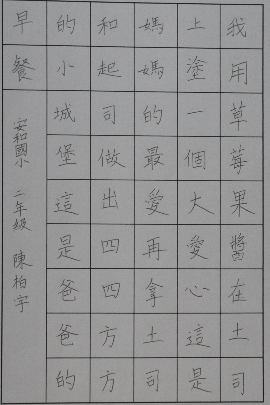 我用草莓果醬在土司
上塗一個大愛心這是
媽媽的最愛再拿土司
和起司做出四四方方
的小城堡這是爸爸的
早餐
安和國小 二年級 陳柏宇